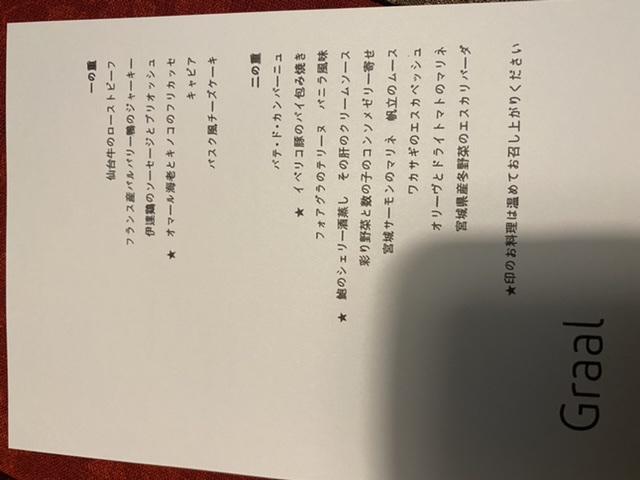 一の重
仙台牛のローストビーフ
フランス産バルバリー鴨のジャーキー
伊達鶏のソーセージとブリオッシュ
★ オマール海老とキノコのフリカッセ
キャビア
バスク風チーズケーキ
二の重
パテ・ド・カンパーニュ
★ イベリコ豚のパイ包み焼き
フォアグラのテリーヌ バニラ風味
★ 鮑のシェリー酒蒸し その肝のクリームソース
彩り野菜と数の子のコンソメゼリー寄せ
宮城サーモンのマリネ 帆立のムース
ワカサギのエスカベッシュ
オリーヴとドライトマトのマリネ
宮城県産冬野菜のエスカリバーダ
★印のお料理は温めてお召し上がりください
Graal